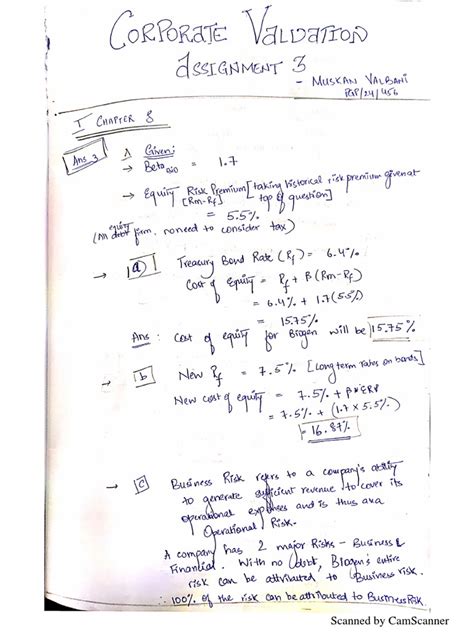 CORPORATE VALUATION
ASSIGNMENT 3
- MUSKAN VALBANI
PGP/24/456
I CHAPTER 8
Ans 3 Given:
→ Beta bio = 1.7
→ Equity Risk Premium [taking historical risk premium given at
[Rm-Rf] top of question]
= 5.5%
equity
(An debt firm, no need to consider tax)
→ a) Treasury Bond Rate (Rf) = 6.4%
Cost of Equity = Rf + β(Rm-Rf)
= 6.4% + 1.7(5.5%)
= 15.75%
Ans: Cost of equity for Biogen will be 15.75%
→ b New Rf = 7.5% [Long term rates on bonds]
New cost of equity = 7.5% + β*ERP
= 7.5% + (1.7 x 5.5%)
= 16.87%
→ C Business Risk refers to a company's ability
to generate sufficient revenue to cover its
operational expenses and is thus aka
Operational Risk.
A company has 2 major Risks - Business &
Financial. With no debt, Biogen's entire
risk can be attributed to Business risk.
∴ 100% of the risk can be attributed to Business Risk.
Scanned by CamScanner